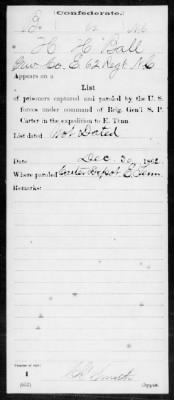 Confederate.
B 62 N.C.
H H Ball
Co. E 62 Regt N.C.
Appears on a
List
of prisoners captured and paroled by the U. S.
forces under command of Brig. Gen'l S. P.
Carter in the expedition to E. Tenn
List dated Not Dated
Date Dec. 30, 1862
Where paroled Carter Depot E. Tenn
Remarks:
Number of roll:
1
(652) Copyist.